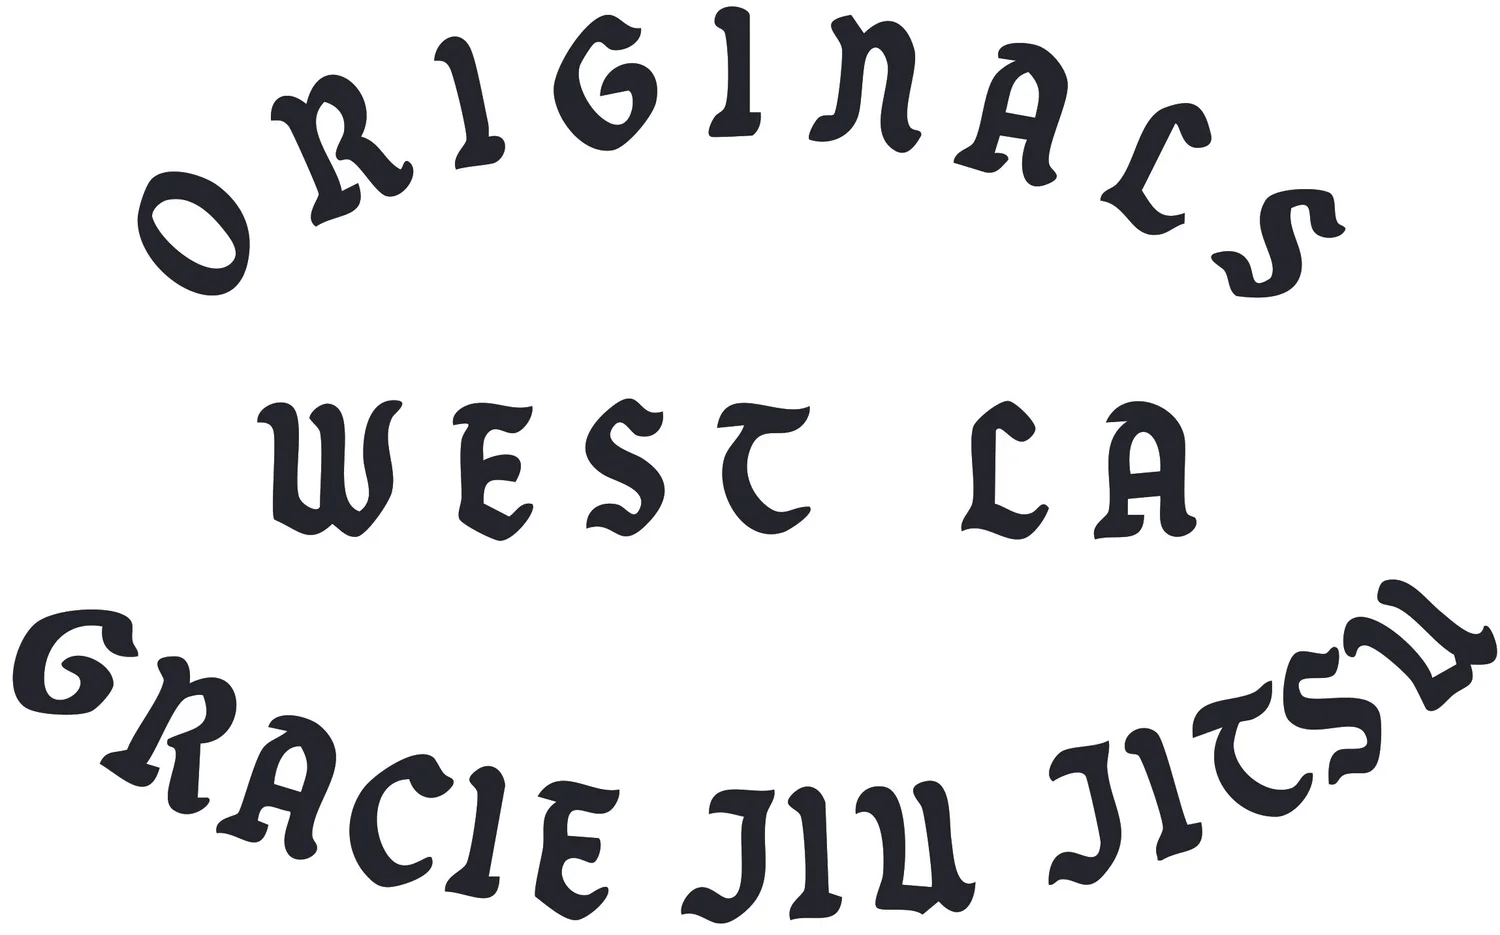 ORIGINALS
WEST LA
GRACIE JIU JITSU